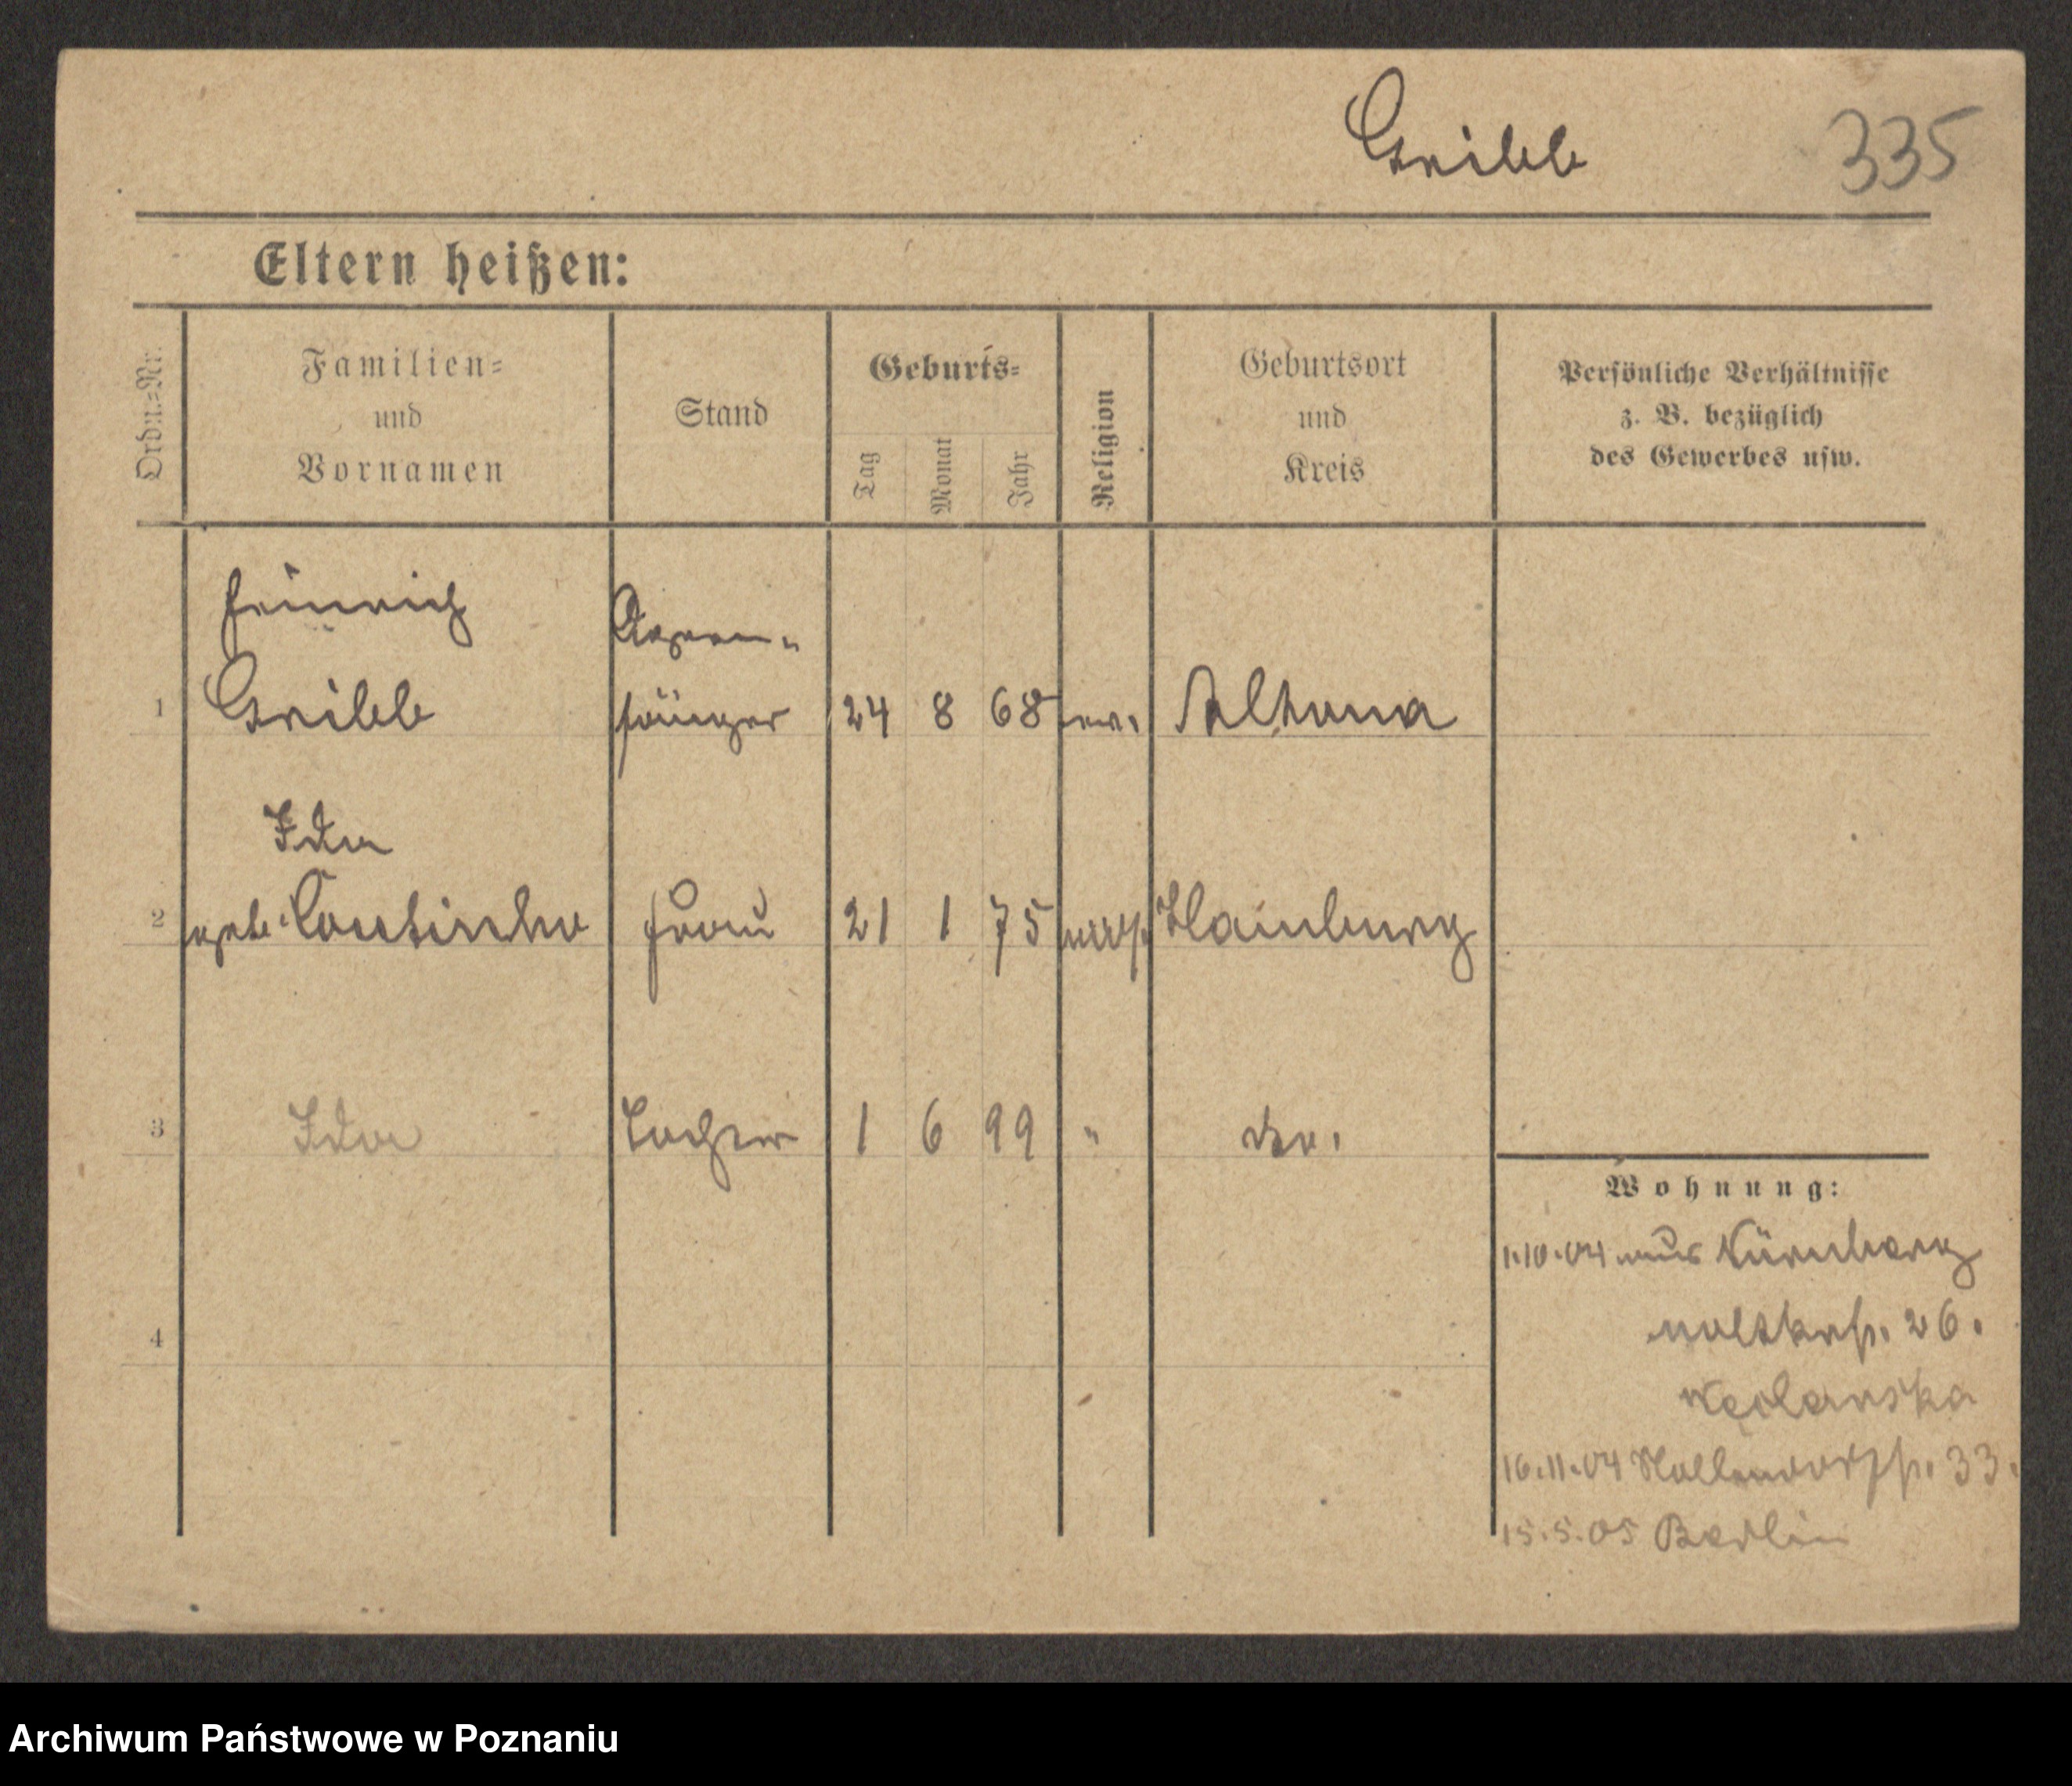 Gribb
335
Eltern heißen:
Ordn.-Nr.
Familien-
und
Vornamen
Stand
Geburts-
Tag
Monat
Jahr
Religion
Geburtsort
und
Kreis
Persönliche Verhältnisse
z. B. bezüglich
des Gewerbes usw.
Heinrich
Opern-
1 Gribb sänger 24 8 68 ev. Altona
Ida
2 geb. Coutinho Frau 21 1 75 Hamburg
3 Ida Tochter 1 6 99 " do.
Wohnung:
1.10.04 aus Nürnberg
Moltkestr. 26.
4
16.11.04 Nollendorfstr. 33.
15.5.05 Berlin
Archiwum Państwowe w Poznaniu